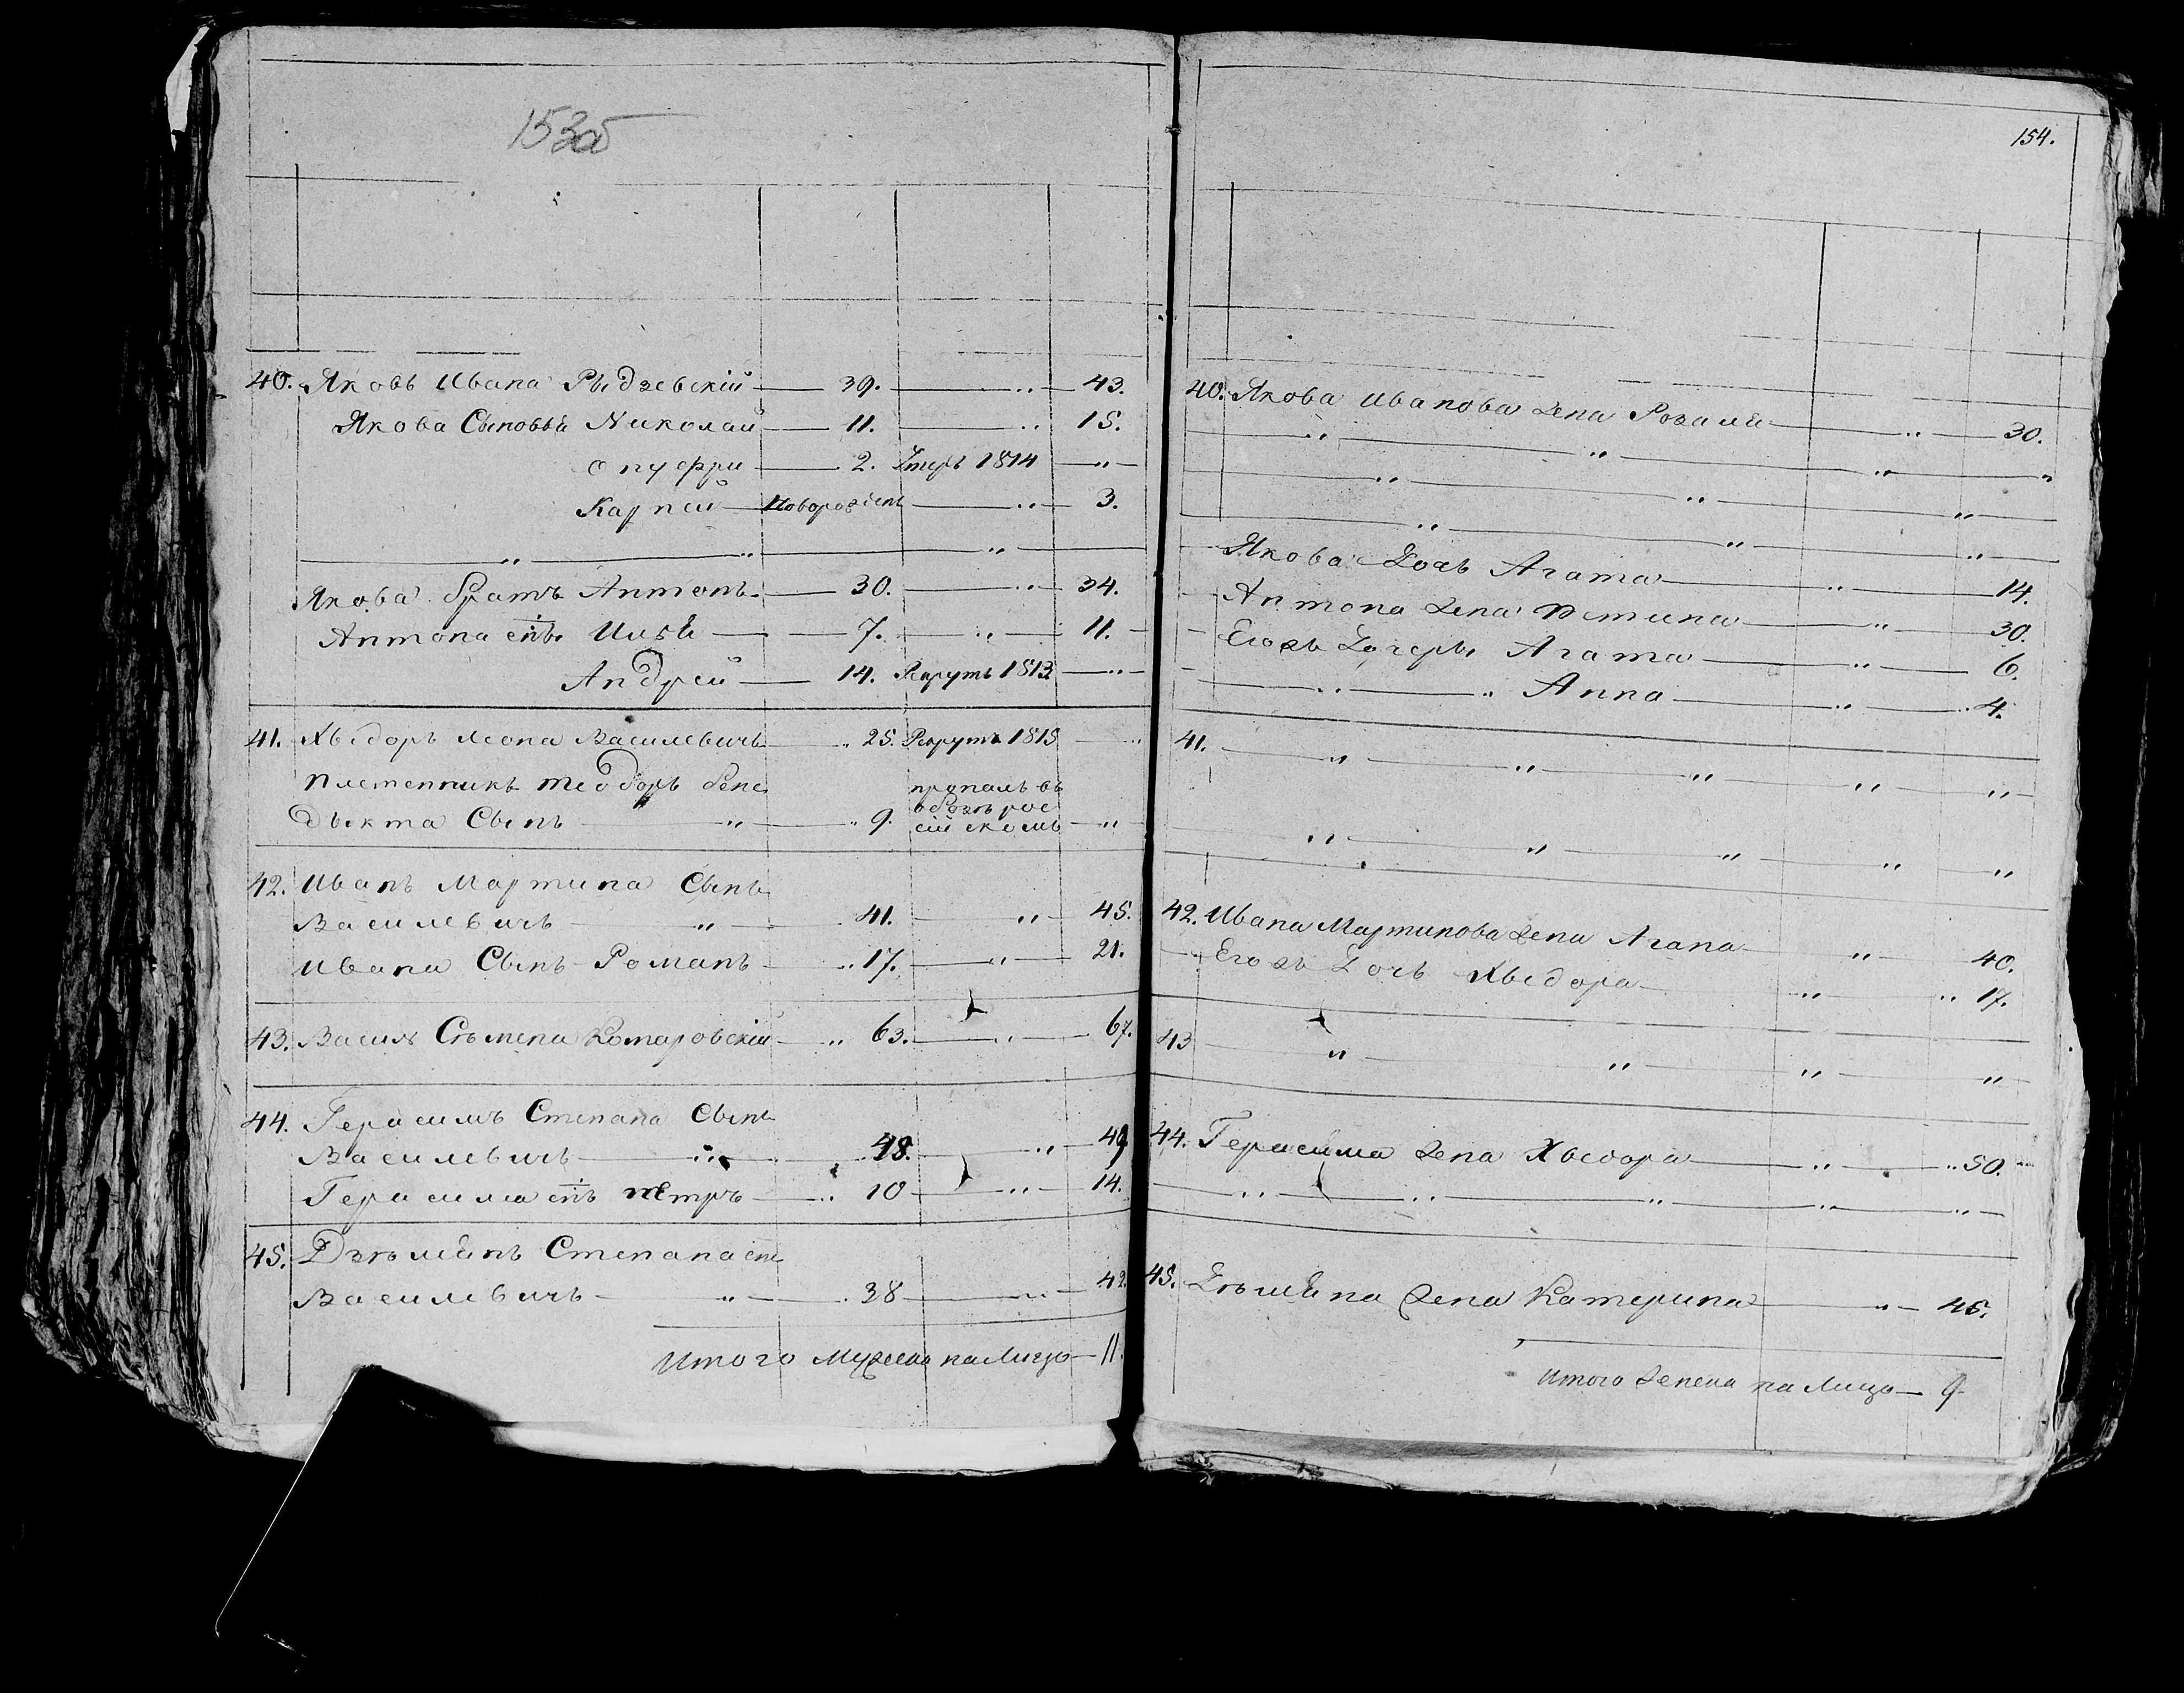 153об
40. Яковъ Ивана Рыдзевскій — 39. — „ — 43.
Якова Сыновья Николай — 11. — „ 15.
Онуфри — 2. Умеръ 1814 — „ —
Карпей — Новорожден — „ — 3.
„ — „ — „ —
Якова братъ Антонъ — 30. — „ — 34.
Антона снъ Илья — 7. — „ — 11.
Андрей — 14. Рекрутъ 1813 — „ —
41. Хведоръ Леона Василевичъ — „ 25. Рекрутъ 1815 — „
Племенникъ Теодоръ Бене
дыкта Сынъ — „ — „ 9. пропалъ въ
обозѣ рос
сійскомъ — „ —
42. Иванъ Мартина Сынъ
Василевичъ — „ — 41. — „ — 45.
Ивана Сынъ Романъ — „ 17. — „ — 21.
43. Васил Сѣмена Комаровскій — „ 63. — „ — 67.
44. Герасимъ Степана Сынъ
Василевичъ — „ — 48. — „ — 49
Герасима снъ Петръ — „ 10 — „ — 14.
45. Дзѣмянъ Степана снъ
Василевичъ — „ — 38 — „ — 42.
Итого Мужеска на Лицо — 11.
154.
40. Якова Иванова Жена Розаля — „ — 30.
„ — „ — „ — „
„ — „ — „ —
„ — „ — „ —
Якова Дочь Агата — „ — 14.
Антона Жена Петина — „ — 30.
Егожъ Дочеры Агата — „ — 6.
„ — „ Анна — „ — 4.
41. — „ — „ — „ — „ — „ —
„ — „ — „ — „ — „
42. Ивана Мартинова Жена Агапа — „ — 40.
Егожъ Дочь Хведора — „ — „ 17.
43 — „ — „ — „ — „
44. Герасима Жена Хведора — „ — „ 50.
„ — „ — „ — „ — „ —
45. Дѣмяна Жена Катерина — „ — 45.
Итого Женска на Лицо — 9